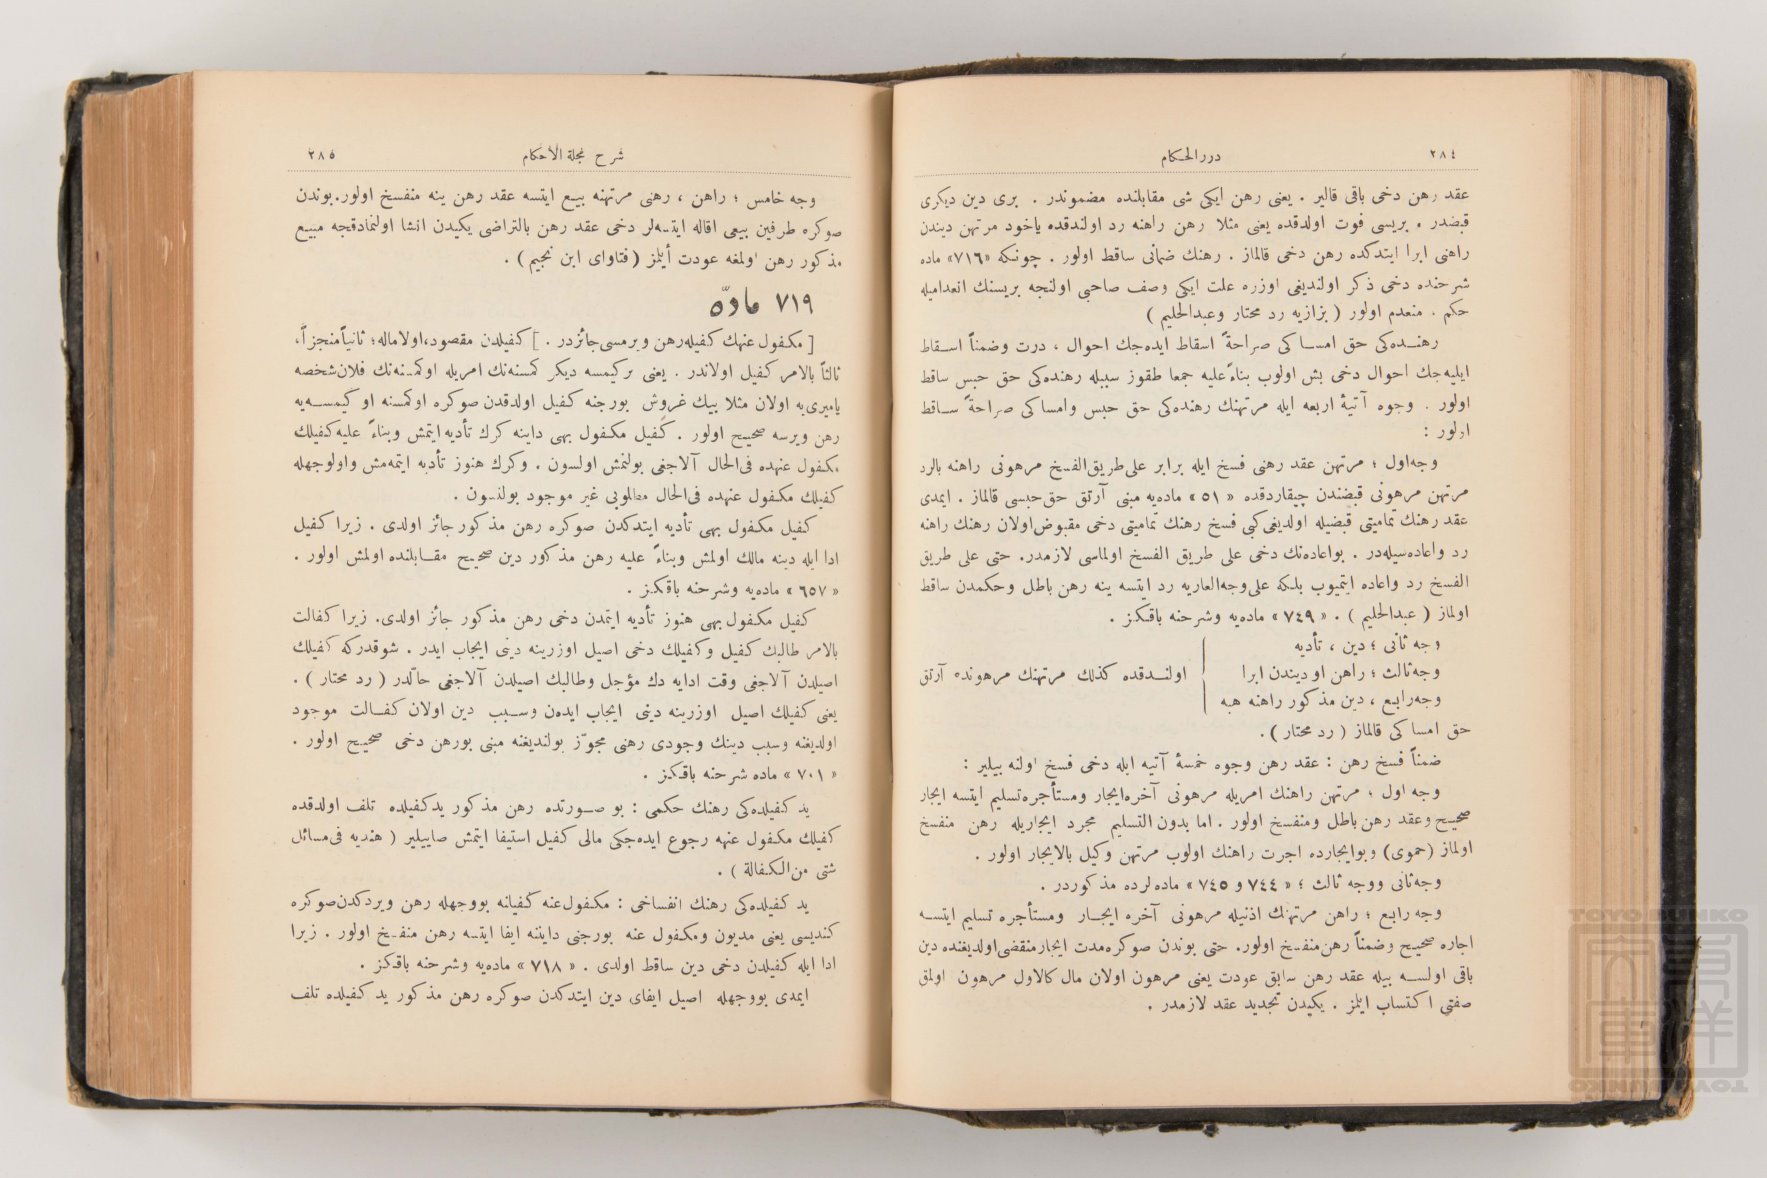 ٢٨٤
دررالحكام
عقد رهن دخی باقی قالیر . یعنی رهن ایكی شی مقابلنده مضموندر . بری دین دیكری
قبضدر . بریسی فوت اولدقده یعنی مثلا رهن راهنه رد اولندقده یاخود مرتهن دیندن
راهنی ابرا ایتدكده رهن دخی قالماز . رهنك ضمانی ساقط اولور . چونكه «٧١٦» ماده
شرحنده دخی ذكر اولندیغی اوزره علت ایكی وصف صاحبی اولنجه بریسنك انعدامیله
حكم . منعدم اولور ( بزازیه رد محتار وعبدالحلیم )
رهنده‌كی حق امساكی صراحةً اسقاط ایده‌جك احوال ، درت وضمناً اسقاط
ایلیه‌جك احوال دخی بش اولوب بناءً علیه جمعا طقوز سببله رهنده‌كی حق حبس ساقط
اولور . وجوه آتیهٔ اربعه ایله مرتهنك رهنده‌كی حق حبس وامساكی صراحةً ساقط
اولور :
وجه‌اول ؛ مرتهن عقد رهنی فسخ ایله برابر علی‌طریق‌الفسخ مرهونی راهنه بالرد
مرتهن مرهونی قبضندن چیقاردقده « ٥١ » ماده‌یه مبنی آرتق حق‌حبسی قالماز . ایمدی
عقد رهنك تمامیتی قبضیله اولدیغی كبی فسخ رهنك تمامیتی دخی مقبوض‌اولان رهنك راهنه
رد واعاده‌سیله‌در . بواعاده‌نك دخی علی طریق الفسخ اولماسی لازمدر. حتی علی طریق
الفسخ رد واعاده ایتمیوب بلكه علی‌وجه‌العاریه رد ایتسه ینه رهن باطل وحكمدن ساقط
اولماز ( عبدالحلیم ) . « ٧٤٩ » ماده‌یه وشرحنه باقكز .
وجه ثانی ؛ دین ، تأدیه
وجه‌ثالث ؛ راهن او دیندن ابرا
اولندقده كذلك مرتهنك مرهونده آرتق
وجه‌رابع ، دین مذكور راهنه هبه
حق امساكی قالماز ( رد محتار ) .
ضمناً فسخ رهن : عقد رهن وجوه خمسهٔ آتیه ایله دخی فسخ اولنه بیلیر :
وجه اول ؛ مرتهن راهنك امریله مرهونی آخره‌ایجار ومستأجره‌تسلیم ایتسه ایجار
صحیح وعقد رهن باطل ومنفسخ اولور . اما بدون التسلیم مجرد ایجاریله رهن منفسخ
اولماز (حموی) وبوایجارده اجرت راهنك اولوب مرتهن وكیل بالایجار اولور .
وجه‌ثانی ووجه ثالث ؛ « ٧٤٤ و ٧٤٥ » ماده‌لرده مذكوردر .
وجه رابع ؛ راهن مرتهنك اذنیله مرهونی آخره ایجار ومستأجره تسلیم ایتسه
اجاره صحیح وضمناً رهن‌منفسخ اولور. حتی بوندن صوكره‌مدت ایجارمنقضی‌اولدیغنده دین
باقی اولسه بیله عقد رهن سابق عودت یعنی مرهون اولان مال كالاول مرهون اولمق
صفتی اكتساب ایلمز . یكیدن تجدید عقد لازمدر .
شرح مجلة الأحكام
٢٨٥
وجه خامس ؛ راهن ، رهنی مرتهنه بیع ایتسه عقد رهن ینه منفسخ اولور.بوندن
صوكره طرفین بیعی اقاله ایتسه‌لر دخی عقد رهن بالتراضی یكیدن انشا اولنمادقجه مبیع
مذكور رهن اولمغه عودت أیلمز ( فتاوای ابن نجیم ) .
٧١٩ مادّه
[ مكفول عنهك كفیله‌رهن ویرمسی‌جائزدر . ] كفیلدن مقصود،اولاماله؛ ثانیاًمنجزاً،
ثالثاً بالامر كفیل اولاندر . یعنی بركیمسه دیكر كمسنه‌نك امریله اوكمسنه‌نك فلان‌شخصه
یامیری‌یه اولان مثلا بیك غروش بورجنه كفیل اولدقدن صوكره اوكمسنه او كیمسه‌یه
رهن ویرسه صحیح اولور . كفیل مكفول بهی داینه كرك تأدیه ایتمش وبناءً علیه‌كفیلك
مكفول عنهده فی‌الحال آلاجغی بولنمش اولسون . وكرك هنوز تأدیه ایتمه‌مش واولوجهله
كفیلك مكفول عنهده فی‌الحال مطلوبی غیر موجود بولنسون .
كفیل مكفول بهی تأدیه ایتدكدن صوكره رهن مذكور جائز اولدی . زیرا كفیل
ادا ایله دینه مالك اولمش وبناءً علیه رهن مذكور دین صحیح مقابلنده اولمش اولور .
« ٦٥٧ » ماده‌یه وشرحنه باقكز .
كفیل مكفول بهی هنوز تأدیه ایتمدن دخی رهن مذكور جائز اولدی. زیرا كفالت
بالامر طالبك كفیل وكفیلك دخی اصیل اوزرینه دینی ایجاب ایدر . شوقدركه كفیلك
اصیلدن آلاجغی وقت ادایه دك مؤجل وطالبك اصیلدن آلاجغی حالّدر ( رد محتار ) .
یعنی كفیلك اصیل اوزرینه دینی ایجاب ایدەن وسبب دین اولان كفالت موجود
اولدیغنه وسبب دینك وجودی رهنی مجوّز بولندیغنه مبنی بورهن دخی صحیح اولور .
« ٧٠١ » ماده شرحنه باقكز .
ید كفیلده‌كی رهنك حكمی : بو صورتده رهن مذكور یدكفیلده تلف اولدقده
كفیلك مكفول عنهه رجوع ایده‌جكی مالی كفیل استیفا ایتمش صاییلیر ( هندیه فی‌مسائل
شتی من‌الكفالة ) .
ید كفیلده‌كی رهنك انفساخی : مكفول‌عنه كفیلنه بووجهله رهن ویردكدن‌صوكره
كندیسی یعنی مدیون ومكفول عنه بورجنی داینه ایفا ایتسه رهن منفسخ اولور . زیرا
ادا ایله كفیلدن دخی دین ساقط اولدی . « ٧١٨ » ماده‌یه وشرحنه باقكز .
ایمدی بووجهله اصیل ایفای دین ایتدكدن صوكره رهن مذكور ید كفیلده تلف
TOYO BUNKO